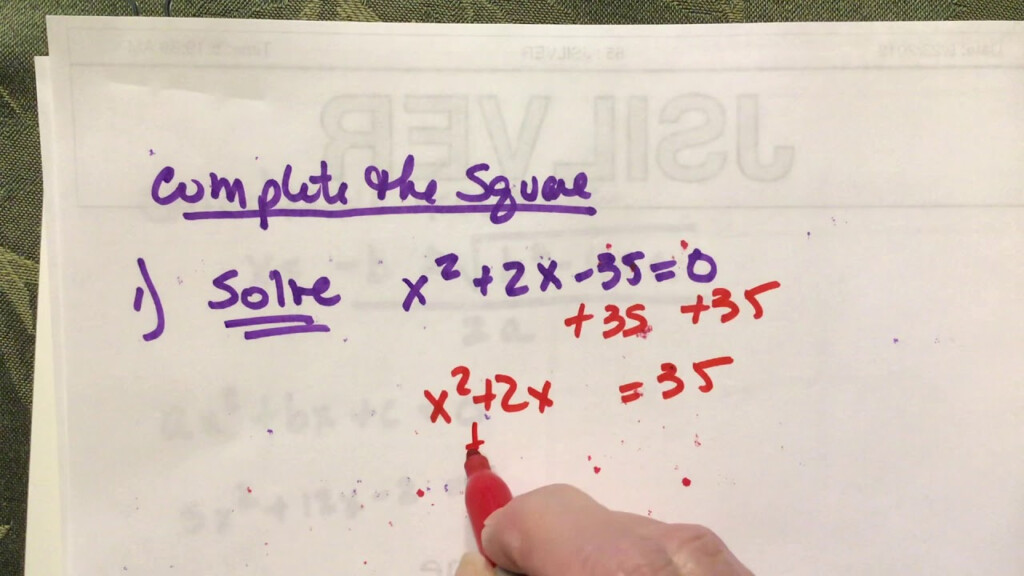 JSILVER
Complete the Square
1) Solve x² + 2x - 35 = 0
+35 +35
x² + 2x = 35
1